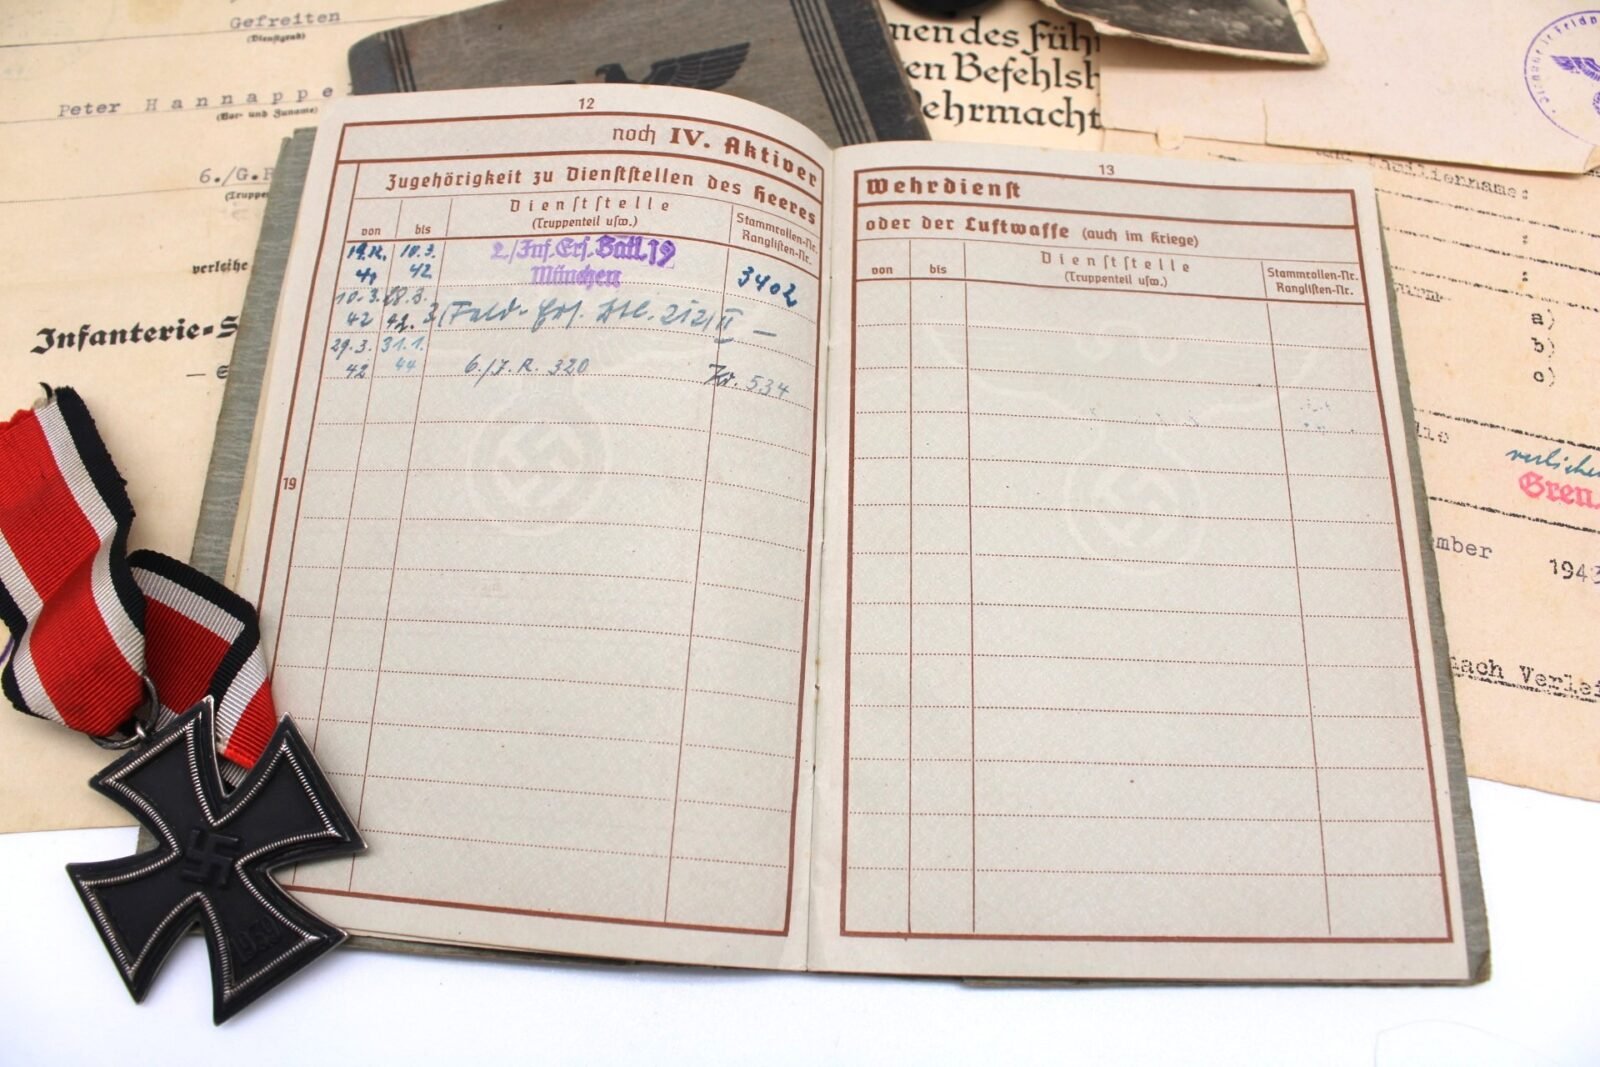 Gefreiten
(Dienstgrad)
Peter Hannappe
(Vor- und Zuname)
6./G.R
(Truppe
verleihe
Infanterie=S
nendes Füh
en Befehlsh
ehrmacht
12
noch IV. Aktiver
Zugehörigkeit zu Dienststellen des Heeres
von
bis
Dienststelle
(Truppenteil usw.)
Stammrollen-Nr.
Ranglisten-Nr.
10.3.
41
42
2./Inf.Ers.Batl.19
München
3402
10.3.
28.3.
42
42.
3/Feld-Ers. Btl. 212/II –
29.3.
31.1.
42
44
6./J.R. 320
Kr. 534
19
13
Wehrdienst
oder der Luftwaffe (auch im Kriege)
von
bis
Dienststelle
(Truppenteil usw.)
Stammrollen-Nr.
Ranglisten-Nr.
miliername:
:
:
a)
b)
c)
Gren.
mber 1943
nach Verlei
1939